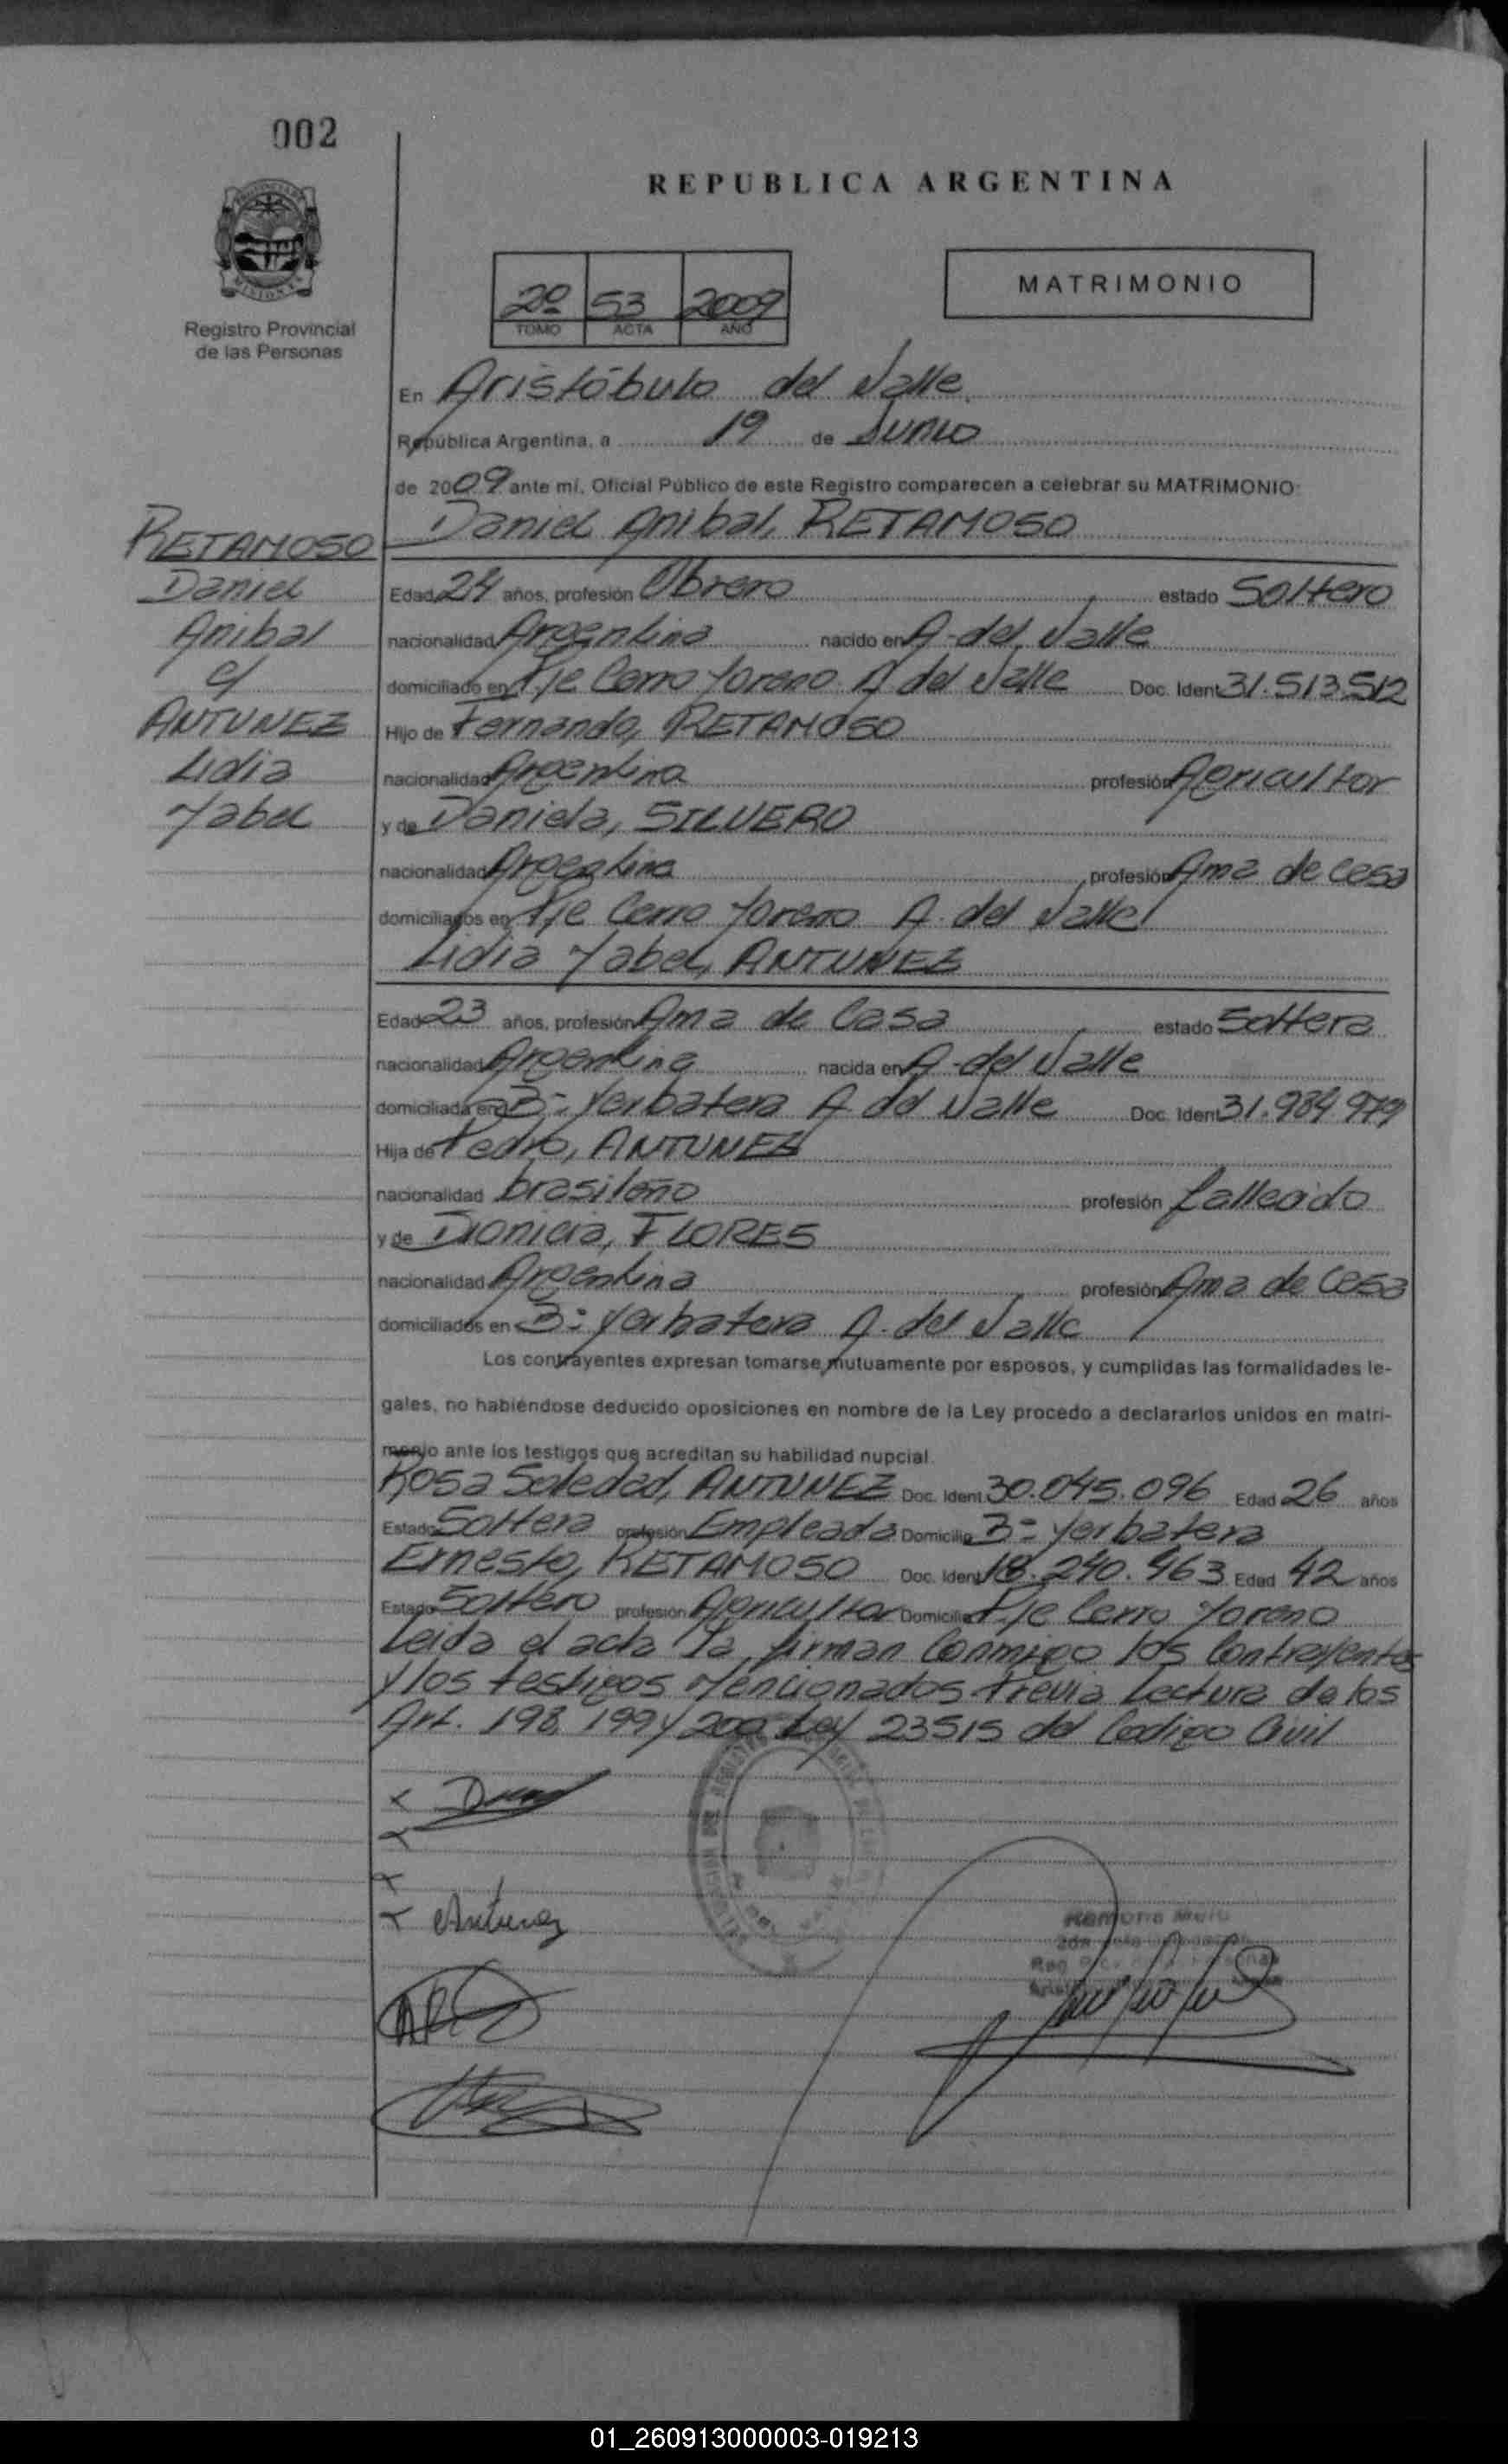 002
REPUBLICA ARGENTINA
MISIONES
Registro Provincial
de las Personas
2º 53 2009
TOMO ACTA AÑO
MATRIMONIO
En Aristóbulo del Valle
República Argentina, a 19 de Junio
de 2009 ante mí, Oficial Público de este Registro comparecen a celebrar su MATRIMONIO:
Daniel Anibal, RETAMOSO
RETAMOSO
Daniel
Anibal
c/
ANTUNEZ
Lidia
Yabel
Edad 24 años, profesión Obrero estado Soltero
nacionalidad Argentina nacido en A. del Valle
domiciliado en Pje Cerro Moreno A del Valle Doc. Ident 31.513.512
Hijo de Fernando, RETAMOSO
nacionalidad Argentina profesión Agricultor
y de Daniela, SILVERO
nacionalidad Argentina profesión Ama de casa
domiciliados en Pje Cerro Moreno A. del Valle
Lidia Yabel, ANTUNEZ
Edad 23 años, profesión Ama de Casa estado Soltera
nacionalidad Argentina nacida en A. del Valle
domiciliada en Bº Yerbatera A del Valle Doc. Ident 31.984.979
Hija de Pedro, ANTUNEZ
nacionalidad brasileño profesión fallecido
y de Dionicia, FLORES
nacionalidad Argentina profesión Ama de Casa
domiciliados en Bº Yerbatera A. del Valle
Los contrayentes expresan tomarse mutuamente por esposos, y cumplidas las formalidades le-
gales, no habiéndose deducido oposiciones en nombre de la Ley procedo a declararlos unidos en matri-
monio ante los testigos que acreditan su habilidad nupcial.
Rosa Soledad, ANTUNEZ Doc. Ident. 30.045.096 Edad 26 años
Estado Soltera profesión Empleada Domicilio Bº Yerbatera
Ernesto, RETAMOSO Doc. Ident 18.240.463 Edad 42 años
Estado Soltero profesión Agricultor Domicilio Pje Cerro Moreno
Leida el acta la firman Conmigo los Contrayentes
y los testigos Mencionados Previa Lectura de los
Art. 198, 199 y 200 Ley 23515 del Codigo Civil
x
x
x
x Antunez
01_260913000003-019213